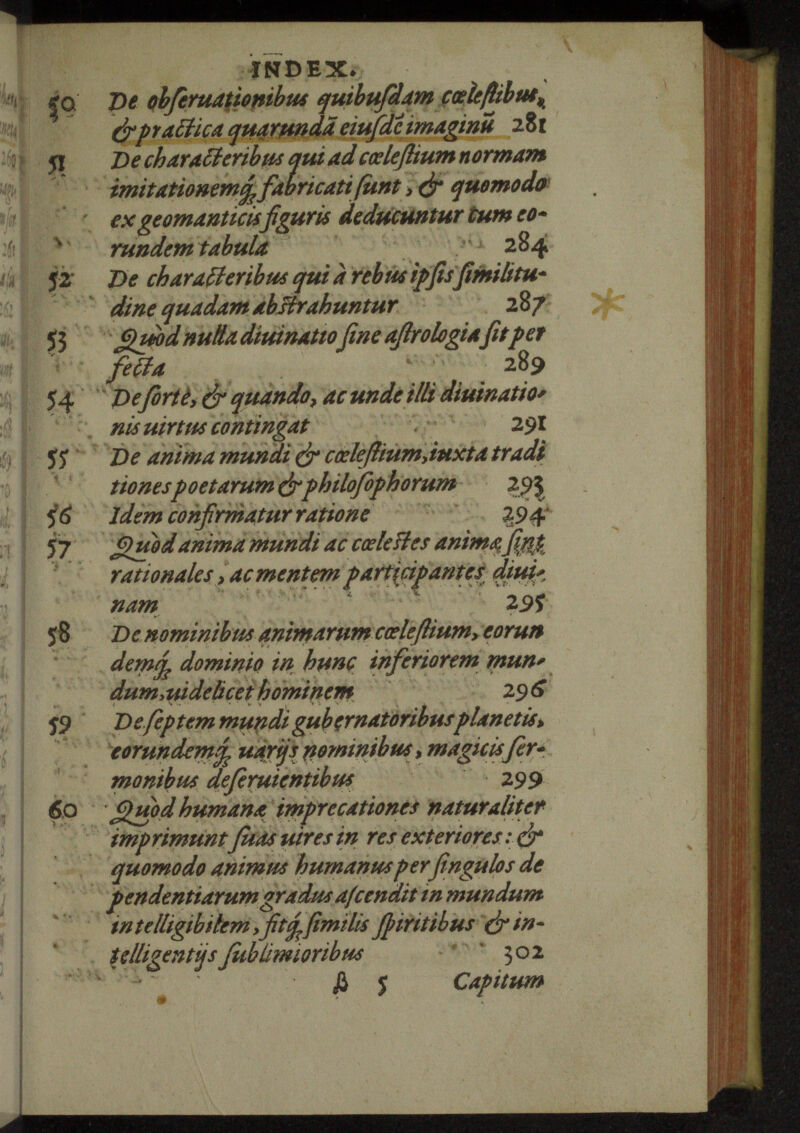 INDEX.
50 De obſeruationibus quibuſdam cœleſtibus,
& practica quarundā eiuſdē imaginū 281
51 De characteribus qui ad cœleſtium normam
imitationemq́; fabricati ſunt, & quomodo
ex geomanticis figuris deducuntur cum eo-
rundem tabula 284
52 De characteribus qui à rebus ipſis ſimilitu-
dine quadam abſtrahuntur 287
53 Quòd nulla diuinatio ſine aſtrologia ſit per
fecta 289
54 De ſorte, & quando, ac unde illi diuinatio-
nis uirtus contingat 291
55 De anima mundi & cœleſtium, iuxta tradi
tiones poetarum & philoſophorum 293
56 Idem confirmatur ratione 294
57 Quòd anima mundi ac cœleſtes animæ ſint
rationales, ac mentem participantes diui-
nam 295
58 De nominibus animarum cœleſtium, eorun
demq́; dominio in hunc inferiorem mun-
dum, uidelicet hominem 296
59 De ſeptem mundi gubernatoribus planetis,
eorundemq́; uarijs nominibus, magicis ſer-
monibus deſeruientibus 299
60 Quòd humanæ imprecationes naturaliter
imprimunt ſuas uires in res exteriores: &
quomodo animus humanus per ſingulos de
pendentiarum gradus aſcendit in mundum
intelligibilem, fitq́; ſimilis ſpiritibus & in-
telligentijs ſublimioribus 302
ß 5 Capitum